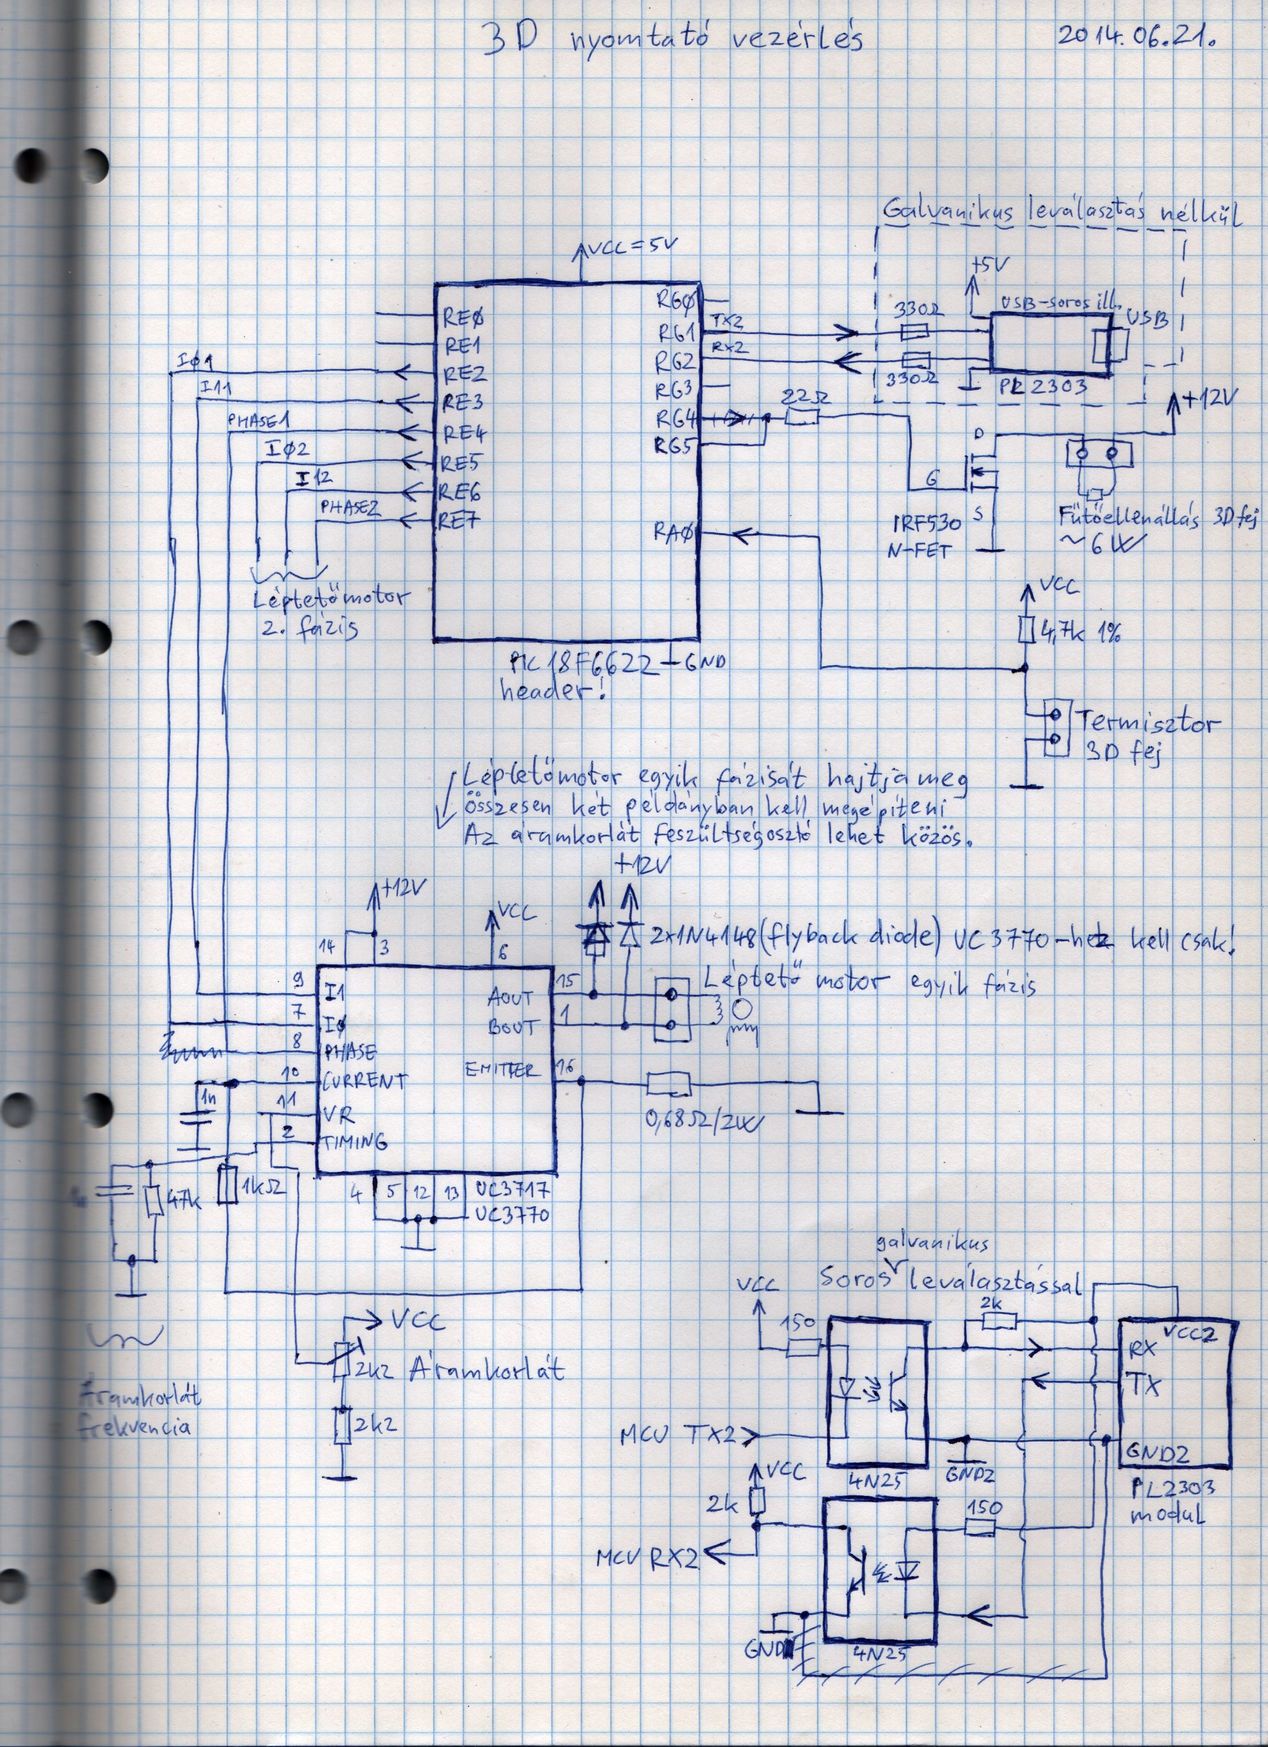 3D nyomtató vezérlés
2014.06.21.
Galvanikus leválasztás nélkül
VCC=5V
+5V
RGØ
RG1
RG2
RG3
RG4
RG5
RAØ
TX2
RX2
330Ω
330Ω
22Ω
USB-soros ill.
USB
PL2303
+12V
REØ
RE1
RE2
RE3
RE4
RE5
RE6
RE7
IØ1
I11
PHASE1
IØ2
I12
PHASE2
Léptetőmotor
2. fázis
D
G
S
IRF530
N-FET
Fűtőellenállás 3D fej
~6W
PIC18F6622
header!
GND
VCC
4,7k 1%
Termisztor
3D fej
Léptetőmotor egyik fázisát hajtja meg
összesen két példányban kell megépíteni
Az áramkorlát feszültségosztó lehet közös.
+12V
+12V
VCC
14
3
6
2x1N4148(flyback diode) UC3770-hez kell csak!
Léptető motor egyik fázis
9
7
8
10
11
2
I1
IØ
PHASE
CURRENT
VR
TIMING
AOUT
BOUT
EMITTER
15
1
16
0,68Ω/2W
1n
47k
1kΩ
4
5
12
13
UC3717
UC3770
Áramkorlát
frekvencia
VCC
2k2 Áramkorlát
2k2
galvanikus
Soros leválasztással
VCC
150
2k
VCC2
RX
TX
GND2
MCU TX2
4N25
GND2
PL2303
modul
VCC
2k
150
MCU RX2
GND
4N25